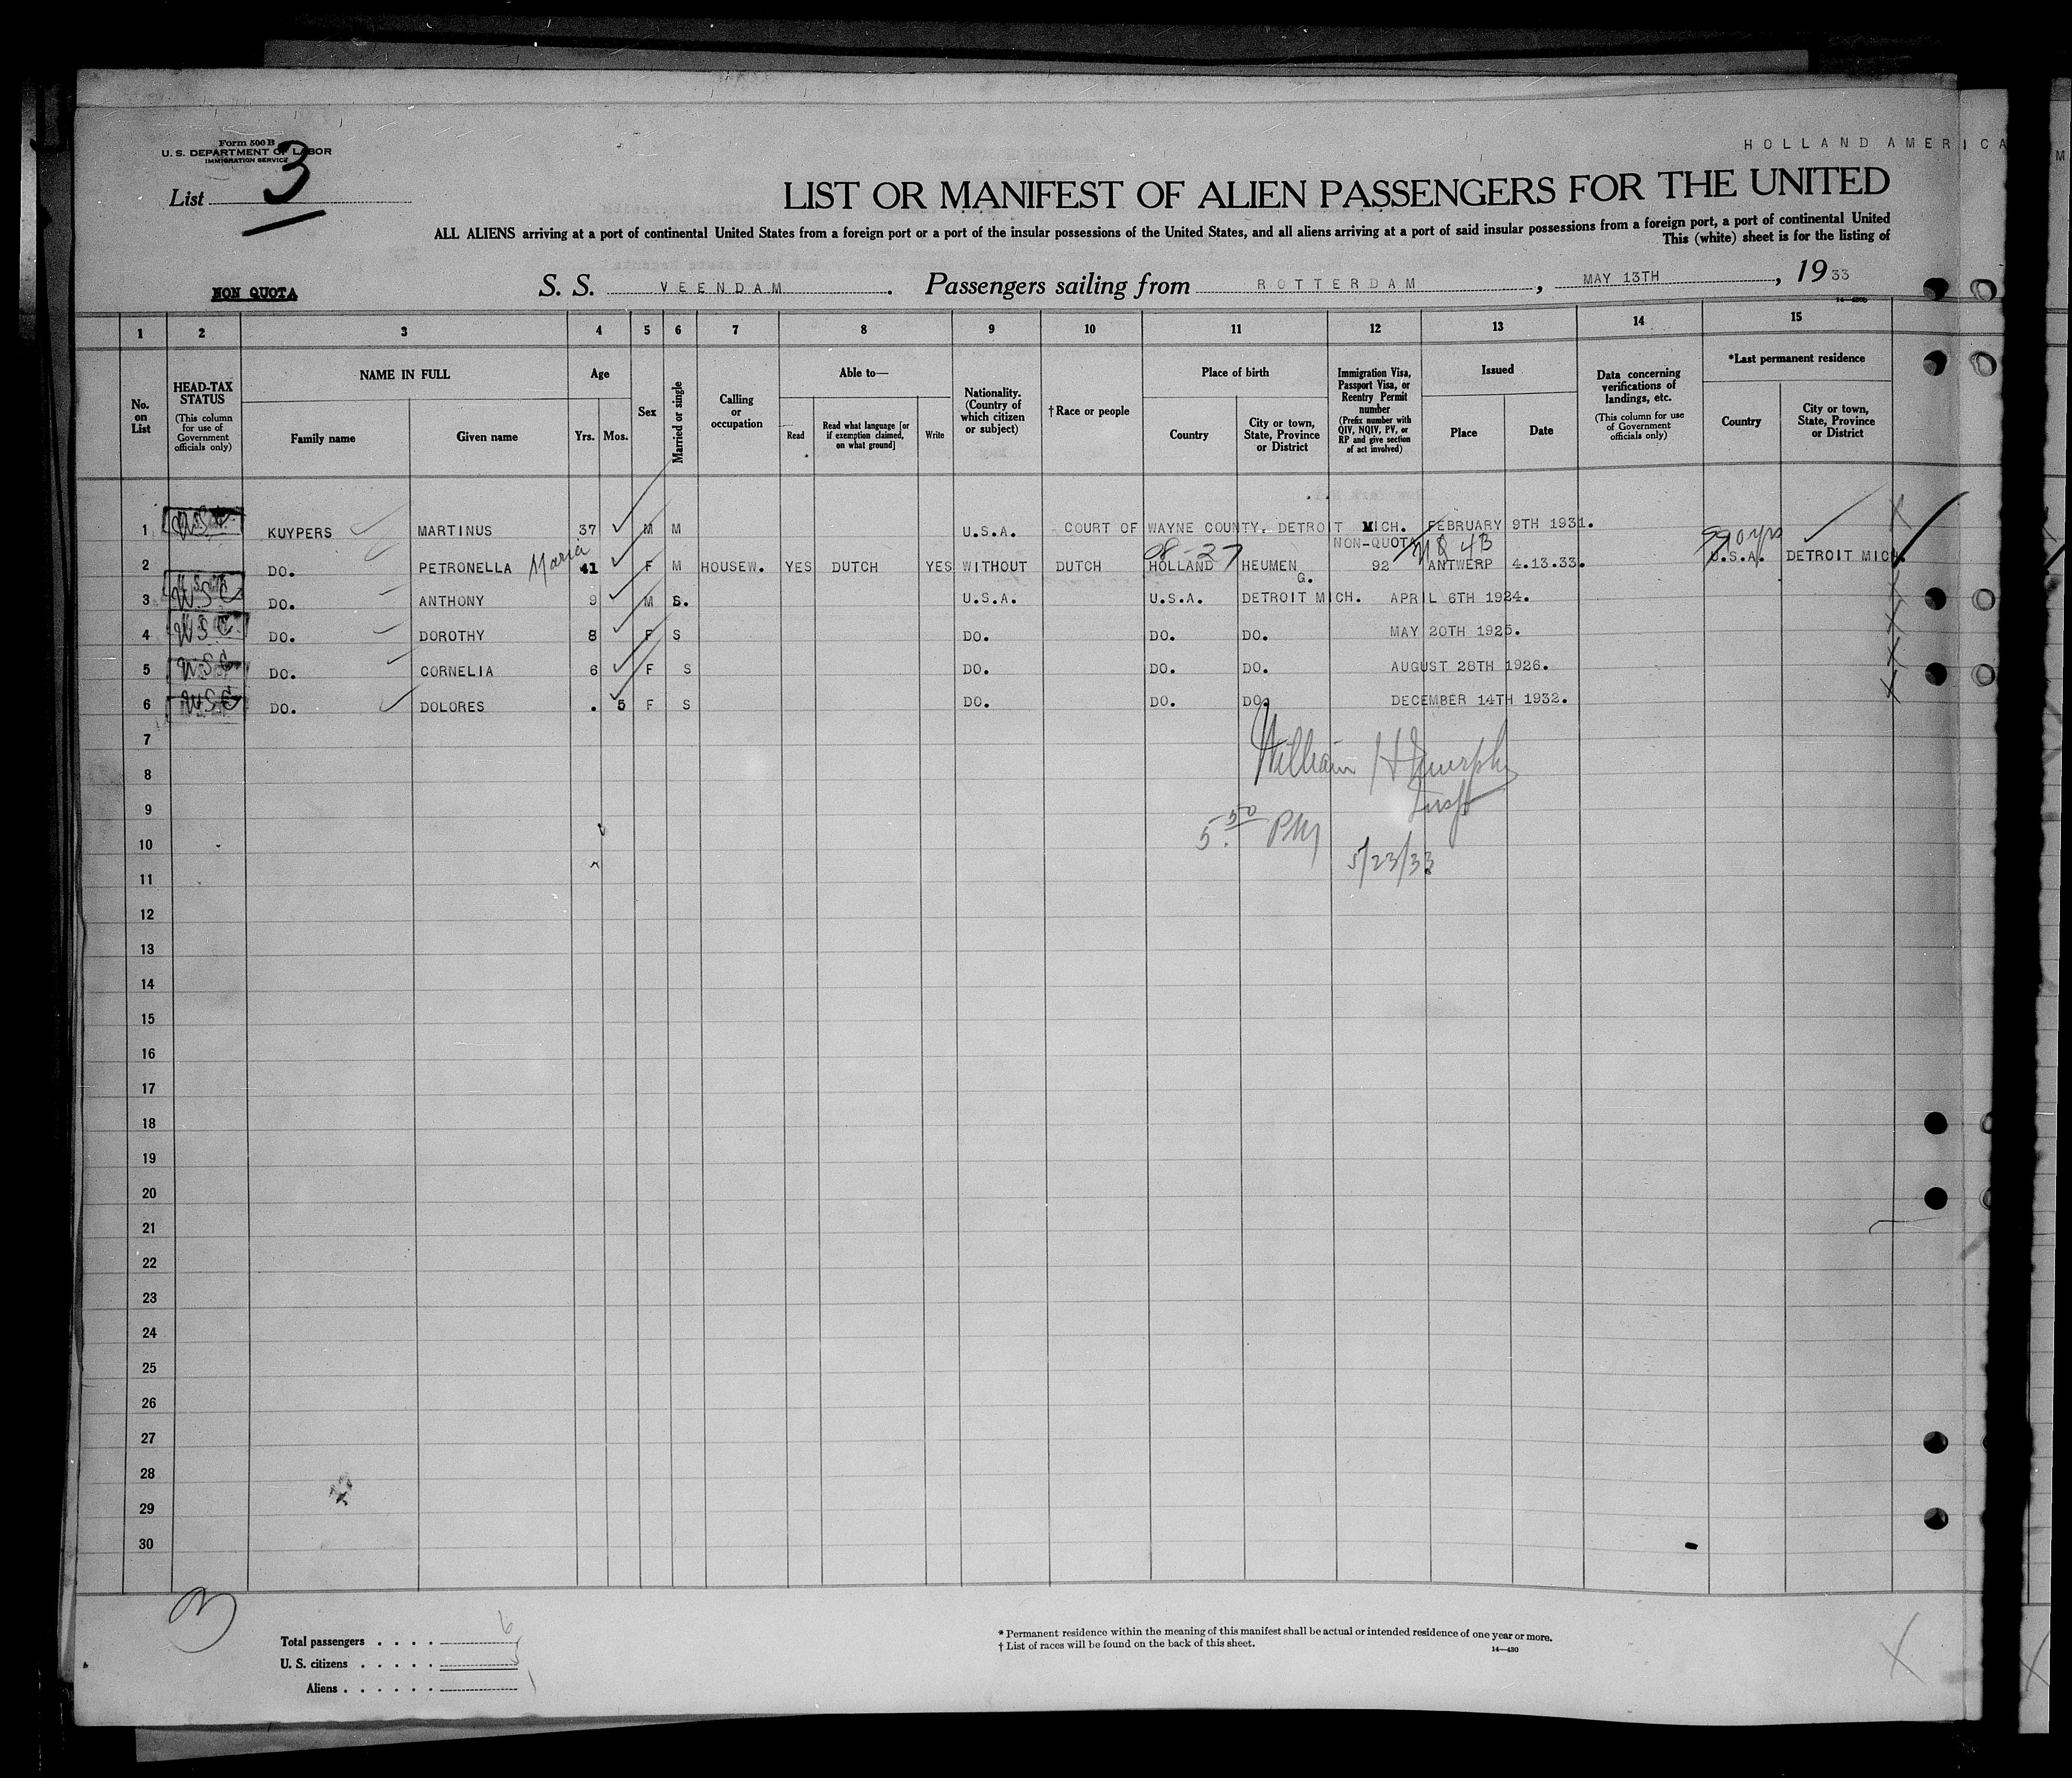 Form 500 B
U. S. DEPARTMENT OF LABOR
IMMIGRATION SERVICE
HOLLAND AMERICA
List 3
LIST OR MANIFEST OF ALIEN PASSENGERS FOR THE UNITED
ALL ALIENS arriving at a port of continental United States from a foreign port or a port of the insular possessions of the United States, and all aliens arriving at a port of said insular possessions from a foreign port, a port of continental United
This (white) sheet is for the listing of
NON QUOTA
S. S. VEENDAM. Passengers sailing from ROTTERDAM, MAY 13TH, 1933
1 2 3 4 5 6 7 8 9 10 11 12 13 14 15
No. on List
HEAD-TAX STATUS (This column for use of Government officials only)
NAME IN FULL
Family name
Given name
Age
Yrs. Mos.
Sex
Married or single
Calling or occupation
Able to—
Read
Read what language [or if exemption claimed, on what ground]
Write
Nationality. (Country of which citizen or subject)
†Race or people
Place of birth
Country
City or town, State, Province or District
Immigration Visa, Passport Visa, or Reentry Permit number (Prefix number with QIV, NQIV, PV, or RP and give section of act involved)
Issued
Place
Date
Data concerning verifications of landings, etc. (This column for use of Government officials only)
*Last permanent residence
Country
City or town, State, Province or District
1 USC KUYPERS MARTINUS 37 M M U.S.A. COURT OF WAYNE COUNTY. DETROIT MICH. FEBRUARY 9TH 1931.
NON-QUOTA
2 DO. PETRONELLA Maria 41 F M HOUSEW. YES DUTCH YES WITHOUT DUTCH HOLLAND HEUMEN G. 92 ANTWERP 4.13.33. U.S.A. DETROIT MICH.
3 USC DO. ANTHONY 9 M S. U.S.A. U.S.A. DETROIT MICH. APRIL 6TH 1924.
4 USC DO. DOROTHY 8 F S DO. DO. DO. MAY 20TH 1925.
5 USC DO. CORNELIA 6 F S DO. DO. DO. AUGUST 28TH 1926.
6 USC DO. DOLORES . 5 F S DO. DO. DO. DECEMBER 14TH 1932.
7
William H Murphy
8
Insp
9
5.50 PM
10
5/23/33
11
12
13
14
15
16
17
18
19
20
21
22
23
24
25
26
27
28
29
30
Total passengers . . . . 6
U. S. citizens . . . . . 5
Aliens . . . . . . 1
* Permanent residence within the meaning of this manifest shall be actual or intended residence of one year or more.
† List of races will be found on the back of this sheet.
14—430